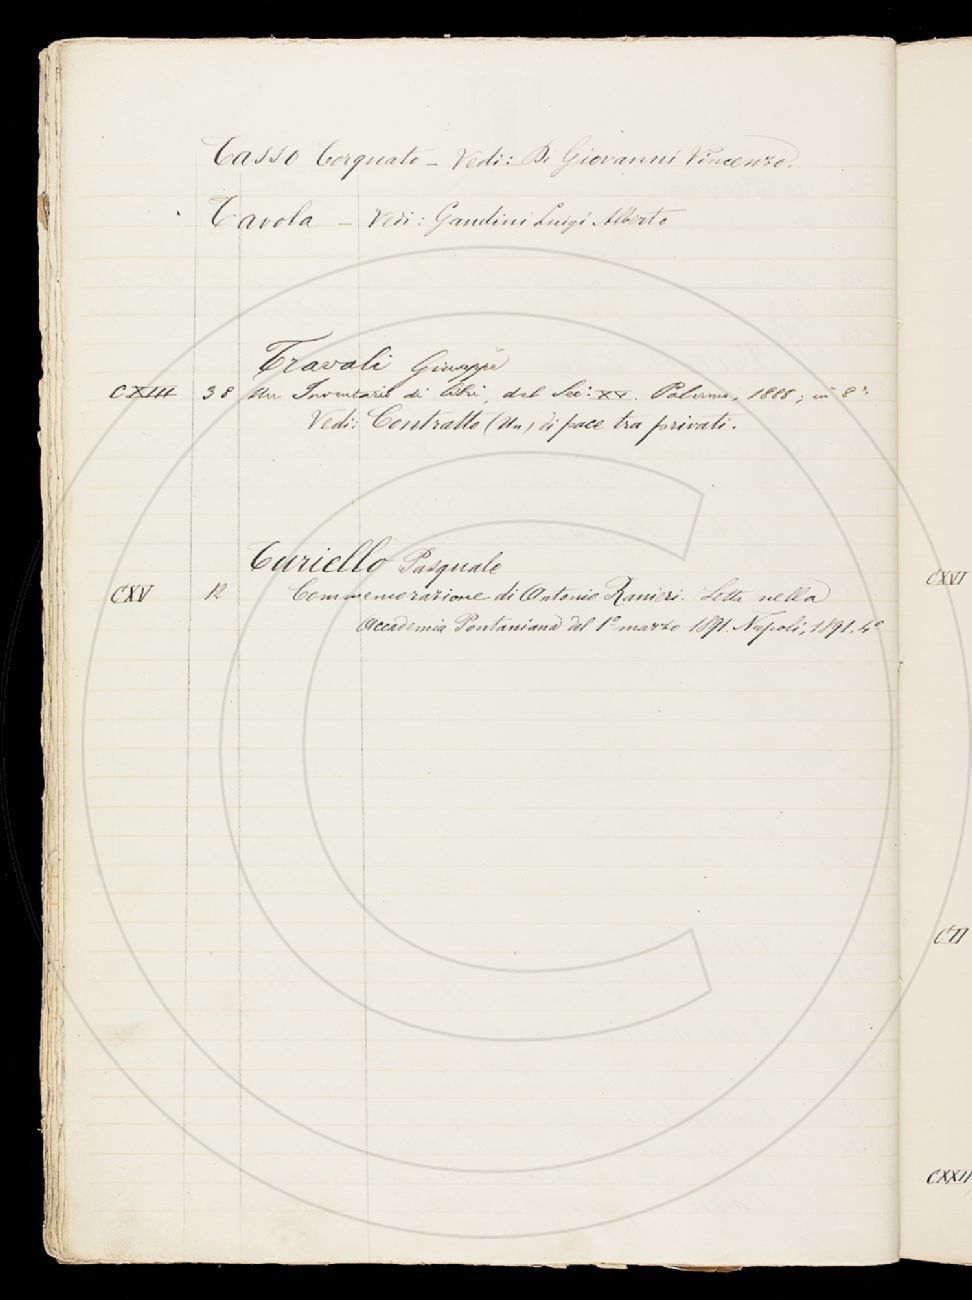 Tasso Torquato – Vedi: Di Giovanni Vincenzo.
Tavola – Vedi: Gandini Luigi Alberto
Travali Giuseppe
CXIII 38 Un Inventario di libri, del Sec: XV. Palermo, 1888; in 8°.
Vedi: Contratto (Un) di pace tra privati.
Turiello Pasquale
CXV 12 Commemorazione di Antonio Ranieri. Letta nella
Accademia Pontaniana del 1° marzo 1891. Napoli, 1891. 4°
CXVI
CII
CXXII